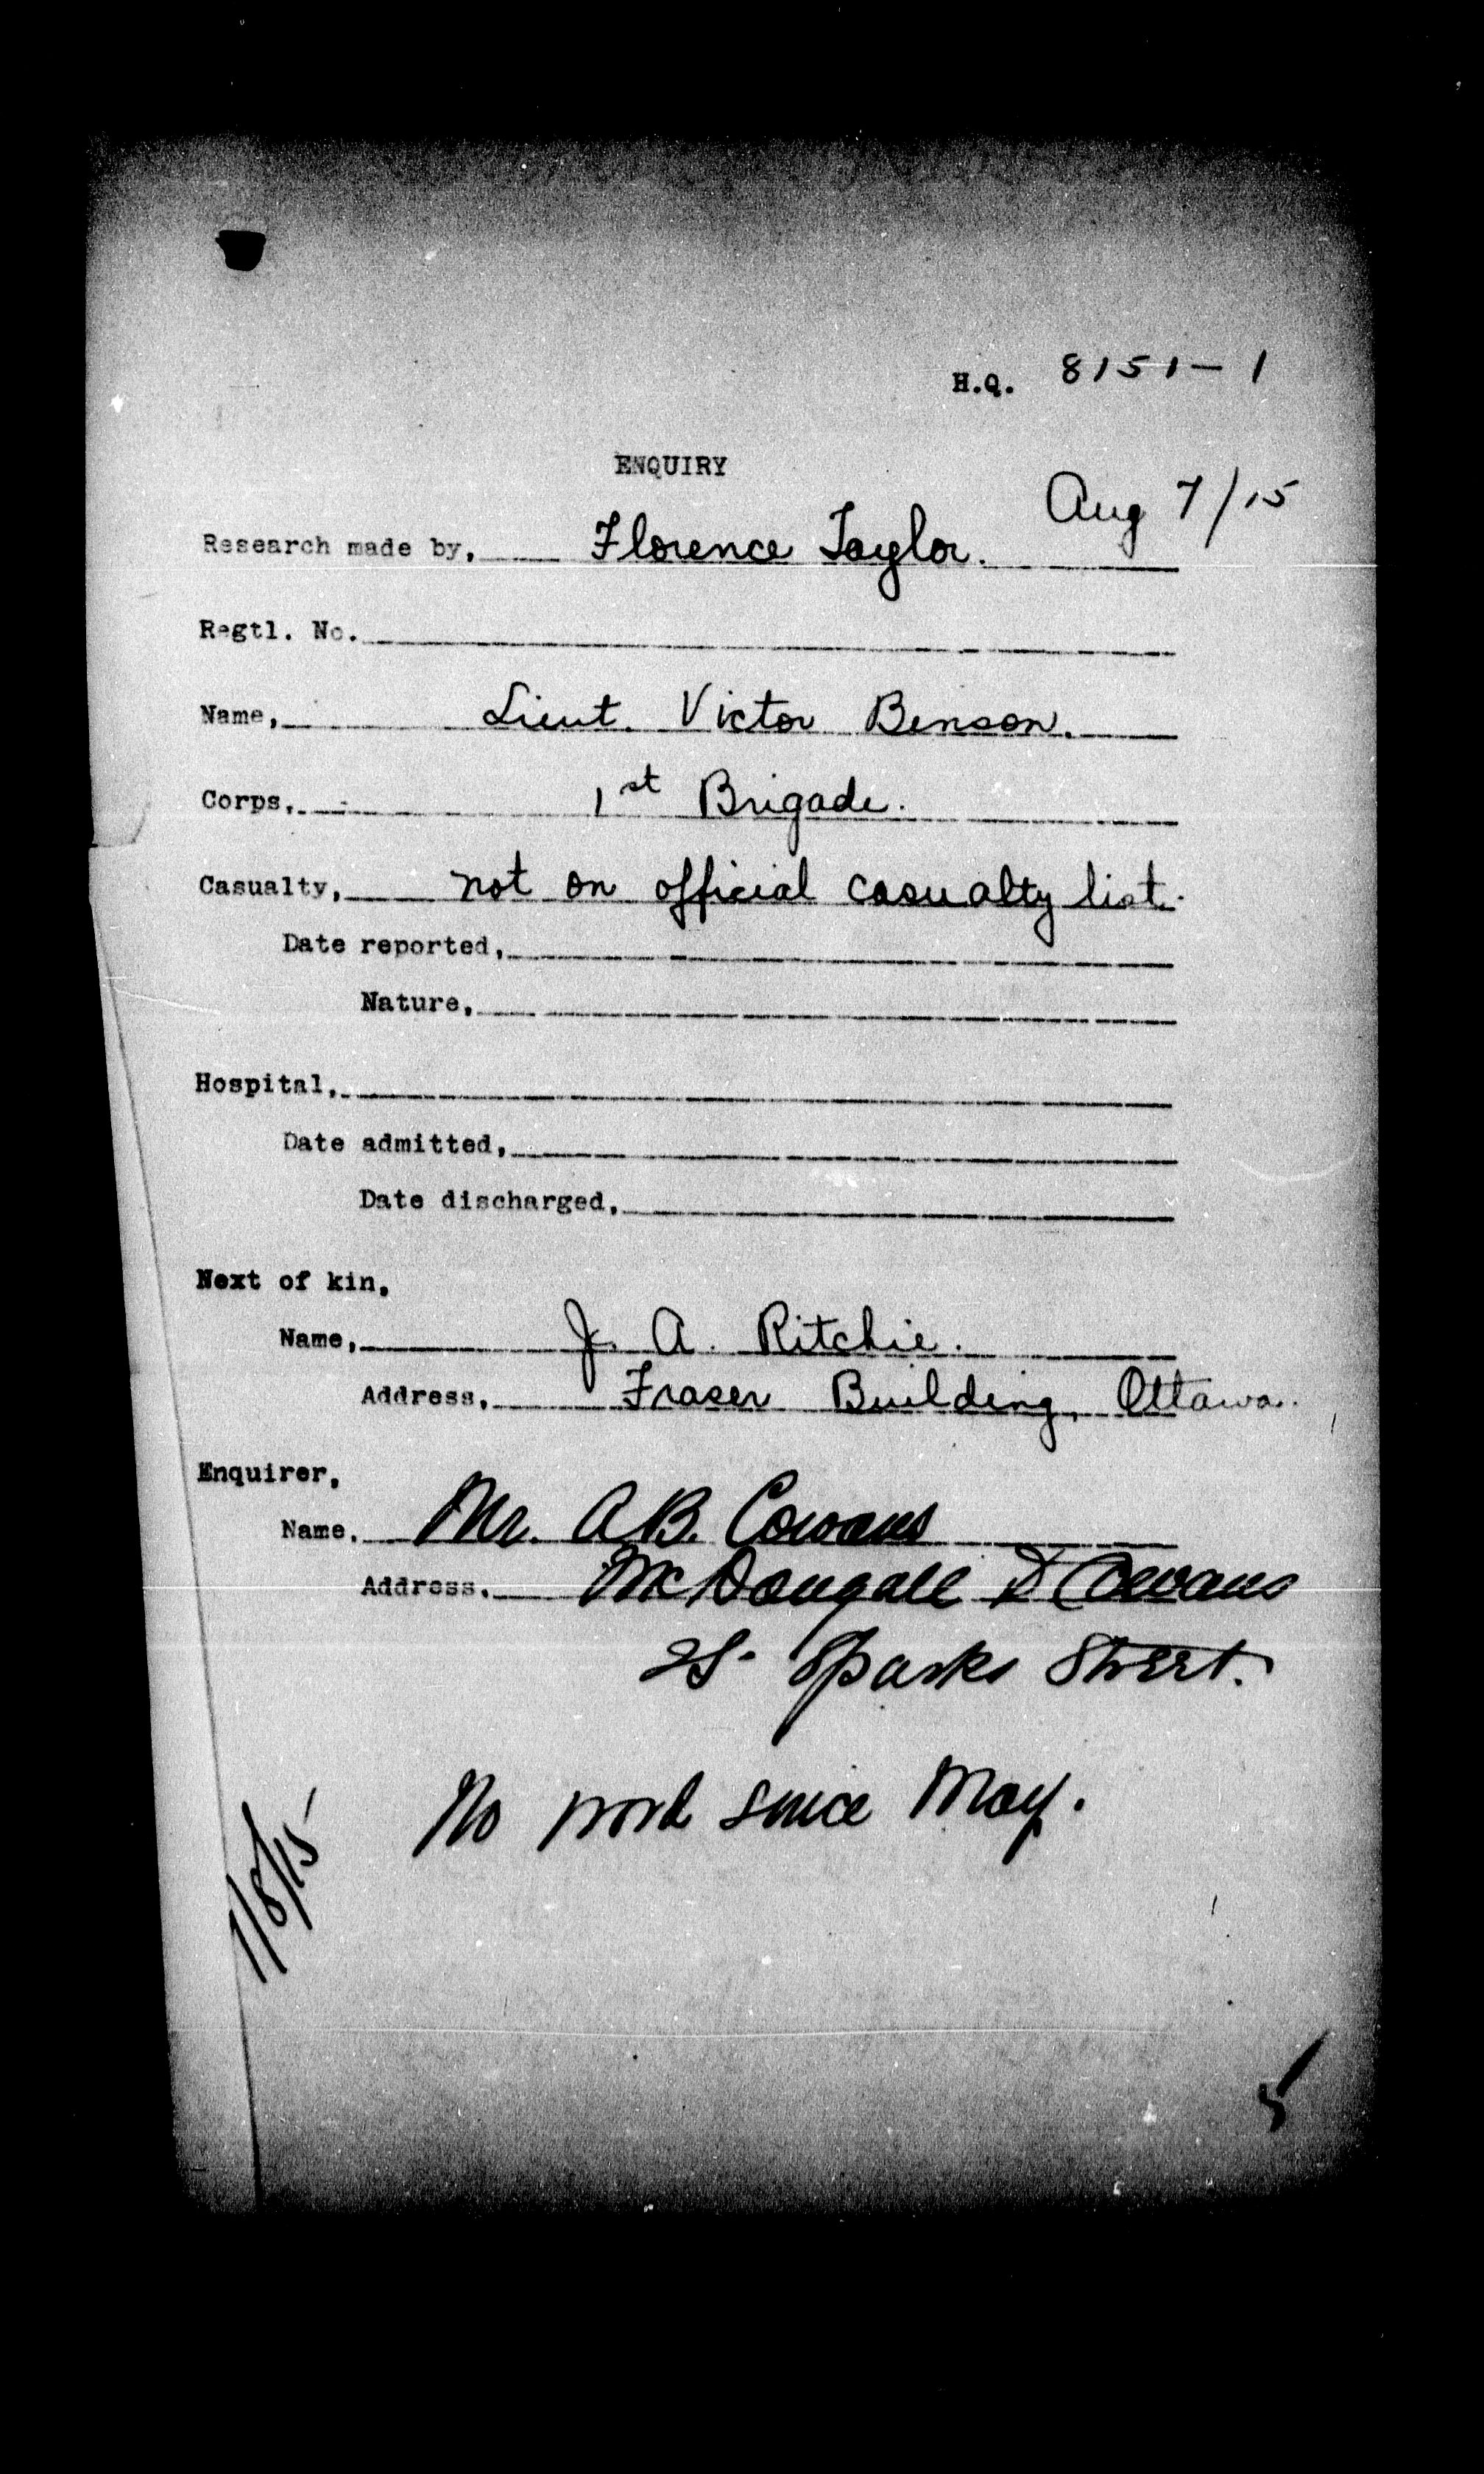 H.Q. 8151-1
ENQUIRY
Aug 7/15
Research made by, Florence Taylor.
Regtl. No.
Name, Lieut. Victor Benson.
Corps, 1st Brigade.
Casualty, not on official casualty list.
Date reported,
Nature,
Hospital,
Date admitted,
Date discharged,
Next of kin,
Name, J. A. Ritchie.
Address, Fraser Building, Ottawa.
Enquirer,
Name, Mr. A B. Cowans
Address, McDougall & Cowans
Sparks Street.
No word since May.
7/8/15